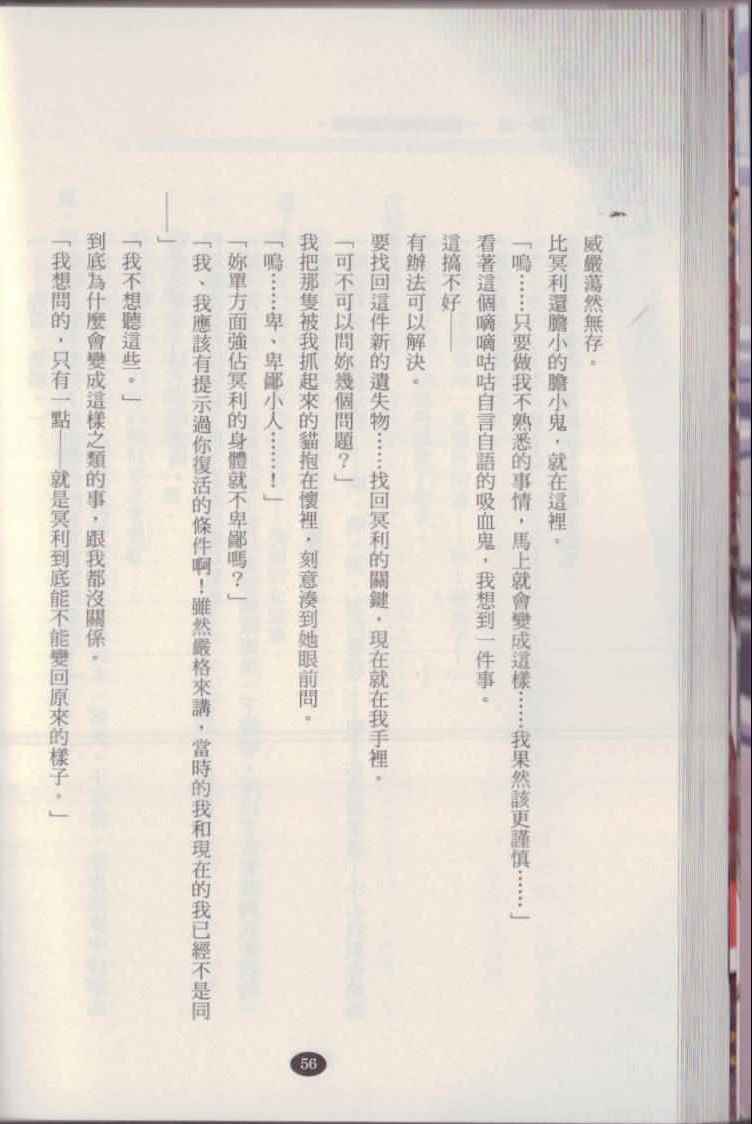 威嚴蕩然無存。
比冥利還膽小的膽小鬼，就在這裡。
「嗚……只要做我不熟悉的事情，馬上就會變成這樣……我果然該更謹慎……」
看著這個嘀嘀咕咕自言自語的吸血鬼，我想到一件事。
這搞不好——
有辦法可以解決。
要找回這件新的遺失物……找回冥利的關鍵，現在就在我手裡。
「可不可以問妳幾個問題？」
我把那隻被我抓起來的貓抱在懷裡，刻意湊到她眼前問。
「嗚……卑、卑鄙小人……！」
「妳單方面強佔冥利的身體就不卑鄙嗎？」
「我、我應該有提示過你復活的條件啊！雖然嚴格來講，當時的我和現在的我已經不是同
——」
「我不想聽這些。」
到底為什麼會變成這樣之類的事，跟我都沒關係。
「我想問的，只有一點——就是冥利到底能不能變回原來的樣子。」
56